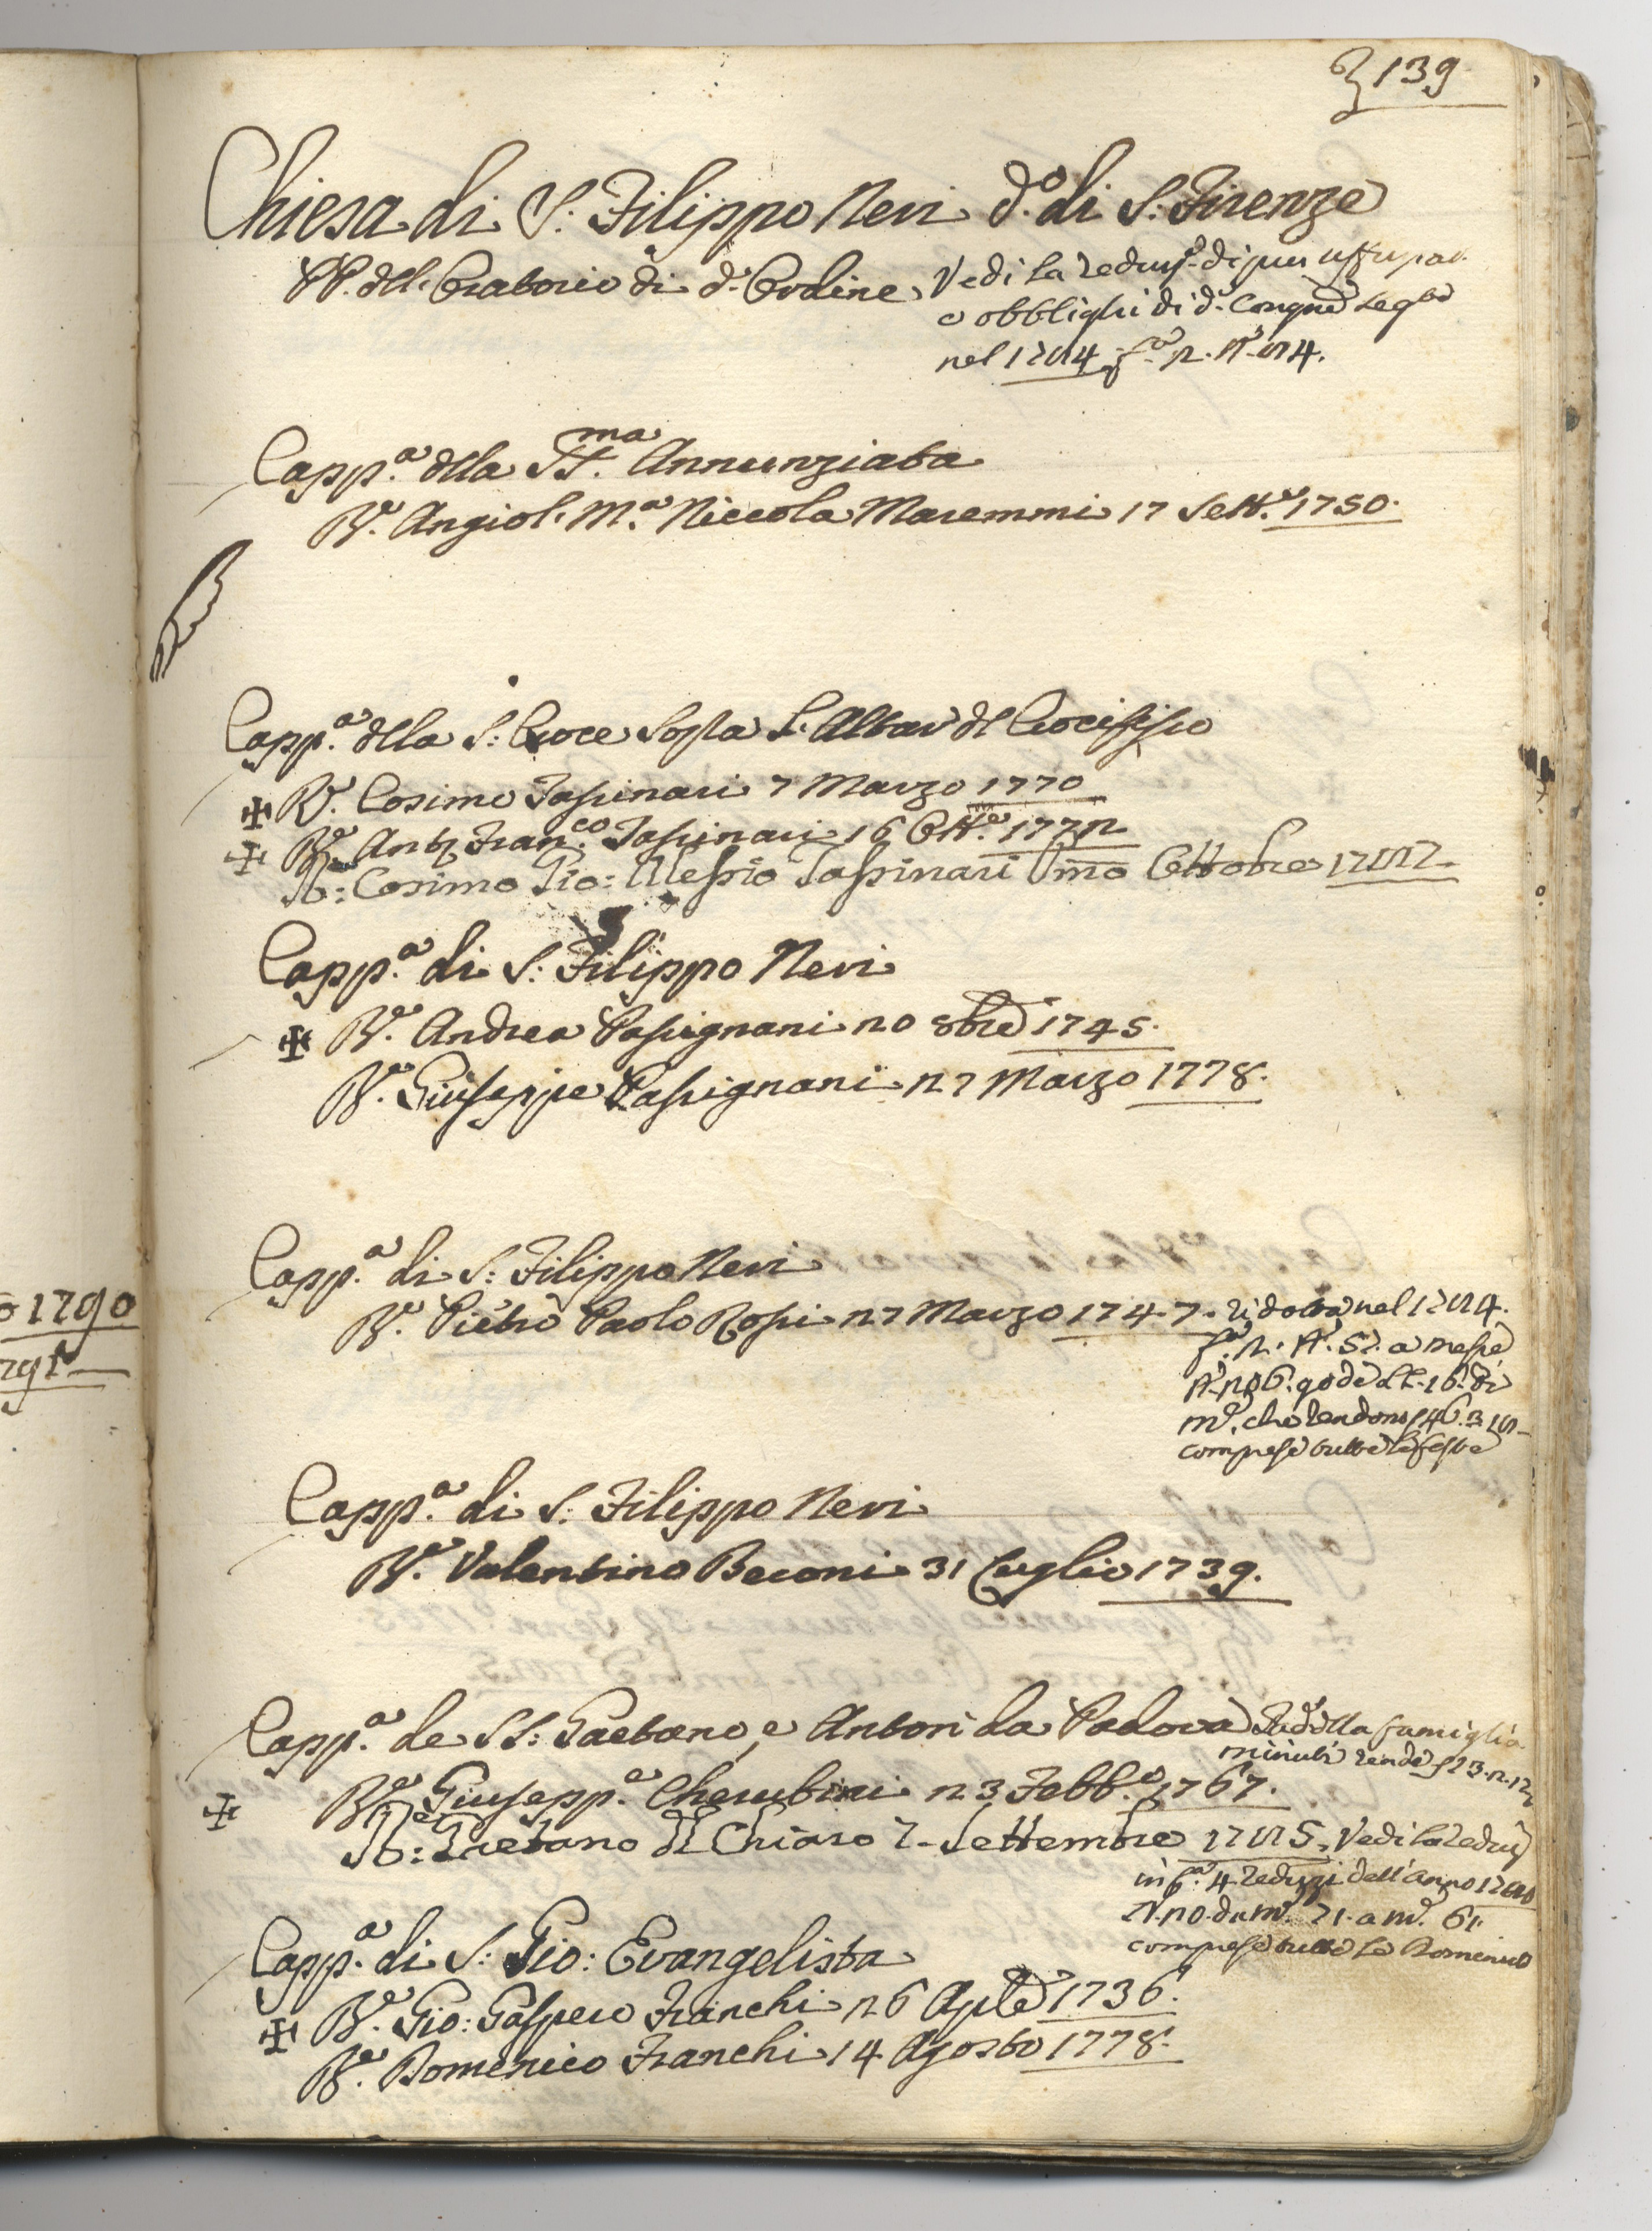 139
Chiesa di S. Filippo Neri d.º di S. Firenze
PP. dell' Oratorio di d.º Ordine
Vedi la
e obblighi di d.ª
nel 1784 f.ª 2. N.º 84.
Capp.ª della SS.ma Annunziata
R.e Angiol. M.a Niccola Maremmi 17 Sett.e 1750.
Capp.ª della S: Croce Posta all' Altar del Crocifisso
✠ R.e Cosimo Tassinari 7 Marzo 1770
✠ R.e Ant.º Fran.co Tassinari 16 Ott.e 1772
R.e: Cosimo Gio: Alessio Tassinari Pmo Ottobre 1787
Capp.ª di S: Filippo Neri
✠ R.e Andrea Passignani 20 8bre 1745.
R.e Giuseppe Passignani 27 Marzo 1778.
o 1790
Capp.ª di S: Filippo Neri
R.e Pietro Paolo Rossi 27 Marzo 1747. ridotta nel 1784.
f.ª 2. N.º 57. a messe
N.º 206. gode di 16. di
m.e che rendono 46.3
comprese tutte le feste
Capp.ª di S: Filippo Neri
R.e Valentino Beconi 31 Luglio 1739.
Capp.ª de SS: Gaetano, e Anton da Padova
della famiglia
minuti rende
✠ R.e Giusepp.e Cherubini 23 Febb.º 1767.
R.e: Gaetano del Chiaro 7 Settembre 1785. Vedi la
in f.ª 4 dell' anno
N. 20. da m.e 71. a m.e 61.
comprese tutte le Domeniche
Capp.ª di S: Gio: Evangelista
✠ R.e Gio: Gaspero Franchi 26 Aple 1736.
R.e Domenico Franchi 14 Agosto 1778.